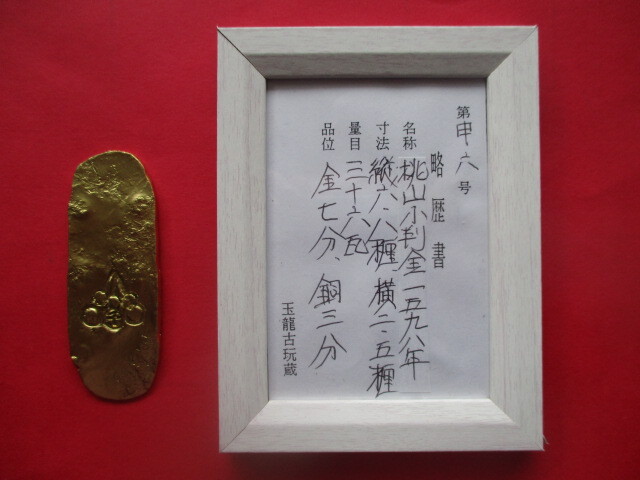 第申六号
略歴書
名称 桃山小判金一五九八年
寸法 縦六·八糎横二·五糎
量目 三十六瓦
品位 金七分、銅三分
玉龍古玩蔵